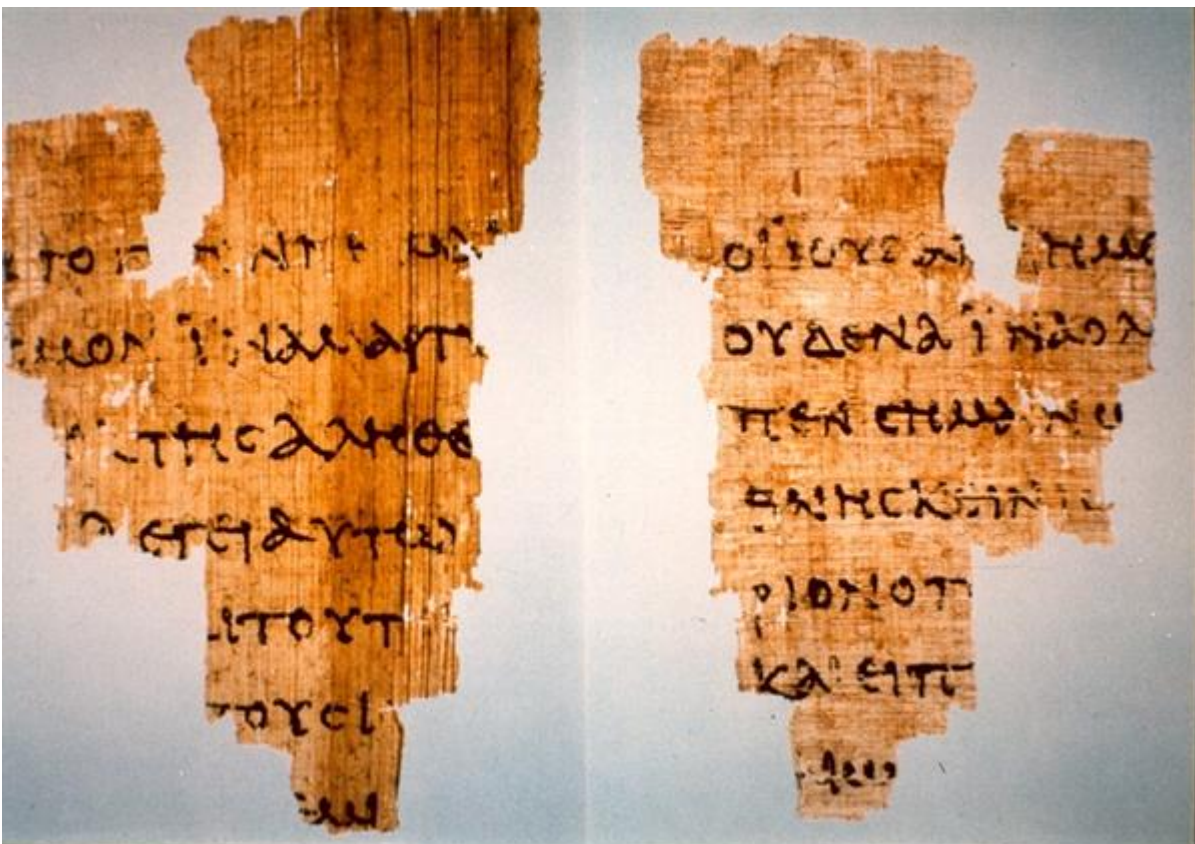 ΤΟ Γ ΓΕΝΝΗΜΑΙ
ϹΜΟΝ ΪΝΑ ΜΑΡΤΥ
ΤΗϹ ΑΛΗΘΕ
ΛΕΓΕΙ ΑΥΤΩ
ΑΙ ΤΟΥΤ
ΤΟΥϹ Ι
ΕΜΙ
ΟΙ ΙΟΥΔΑΙ ΗΜΕ
ΟΥΔΕΝΑ ΪΝΑ Ο Λ
ΠΕΝ ϹΗΜΑΙΝΩ
ΘΝΗϹΚΕΙΝ Ι
ΡΙΟΝ Ο Π
ΚΑΙ ΕΙΠ
ΜΙΩ